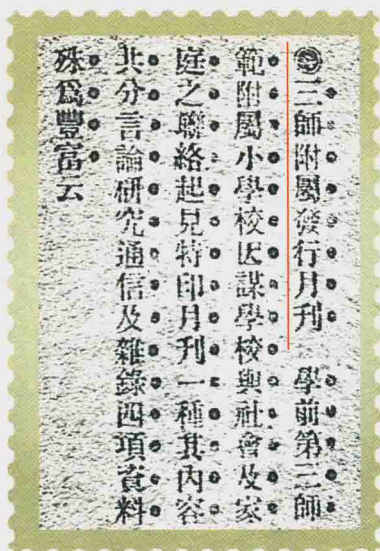 ◎三師附屬發行月刊 學前第三師
範附屬小學校因謀學校與社會及家
庭之聯絡起見特印月刊一種其內容
共分言論研究通信及雜錄四項資料
殊爲豐富云